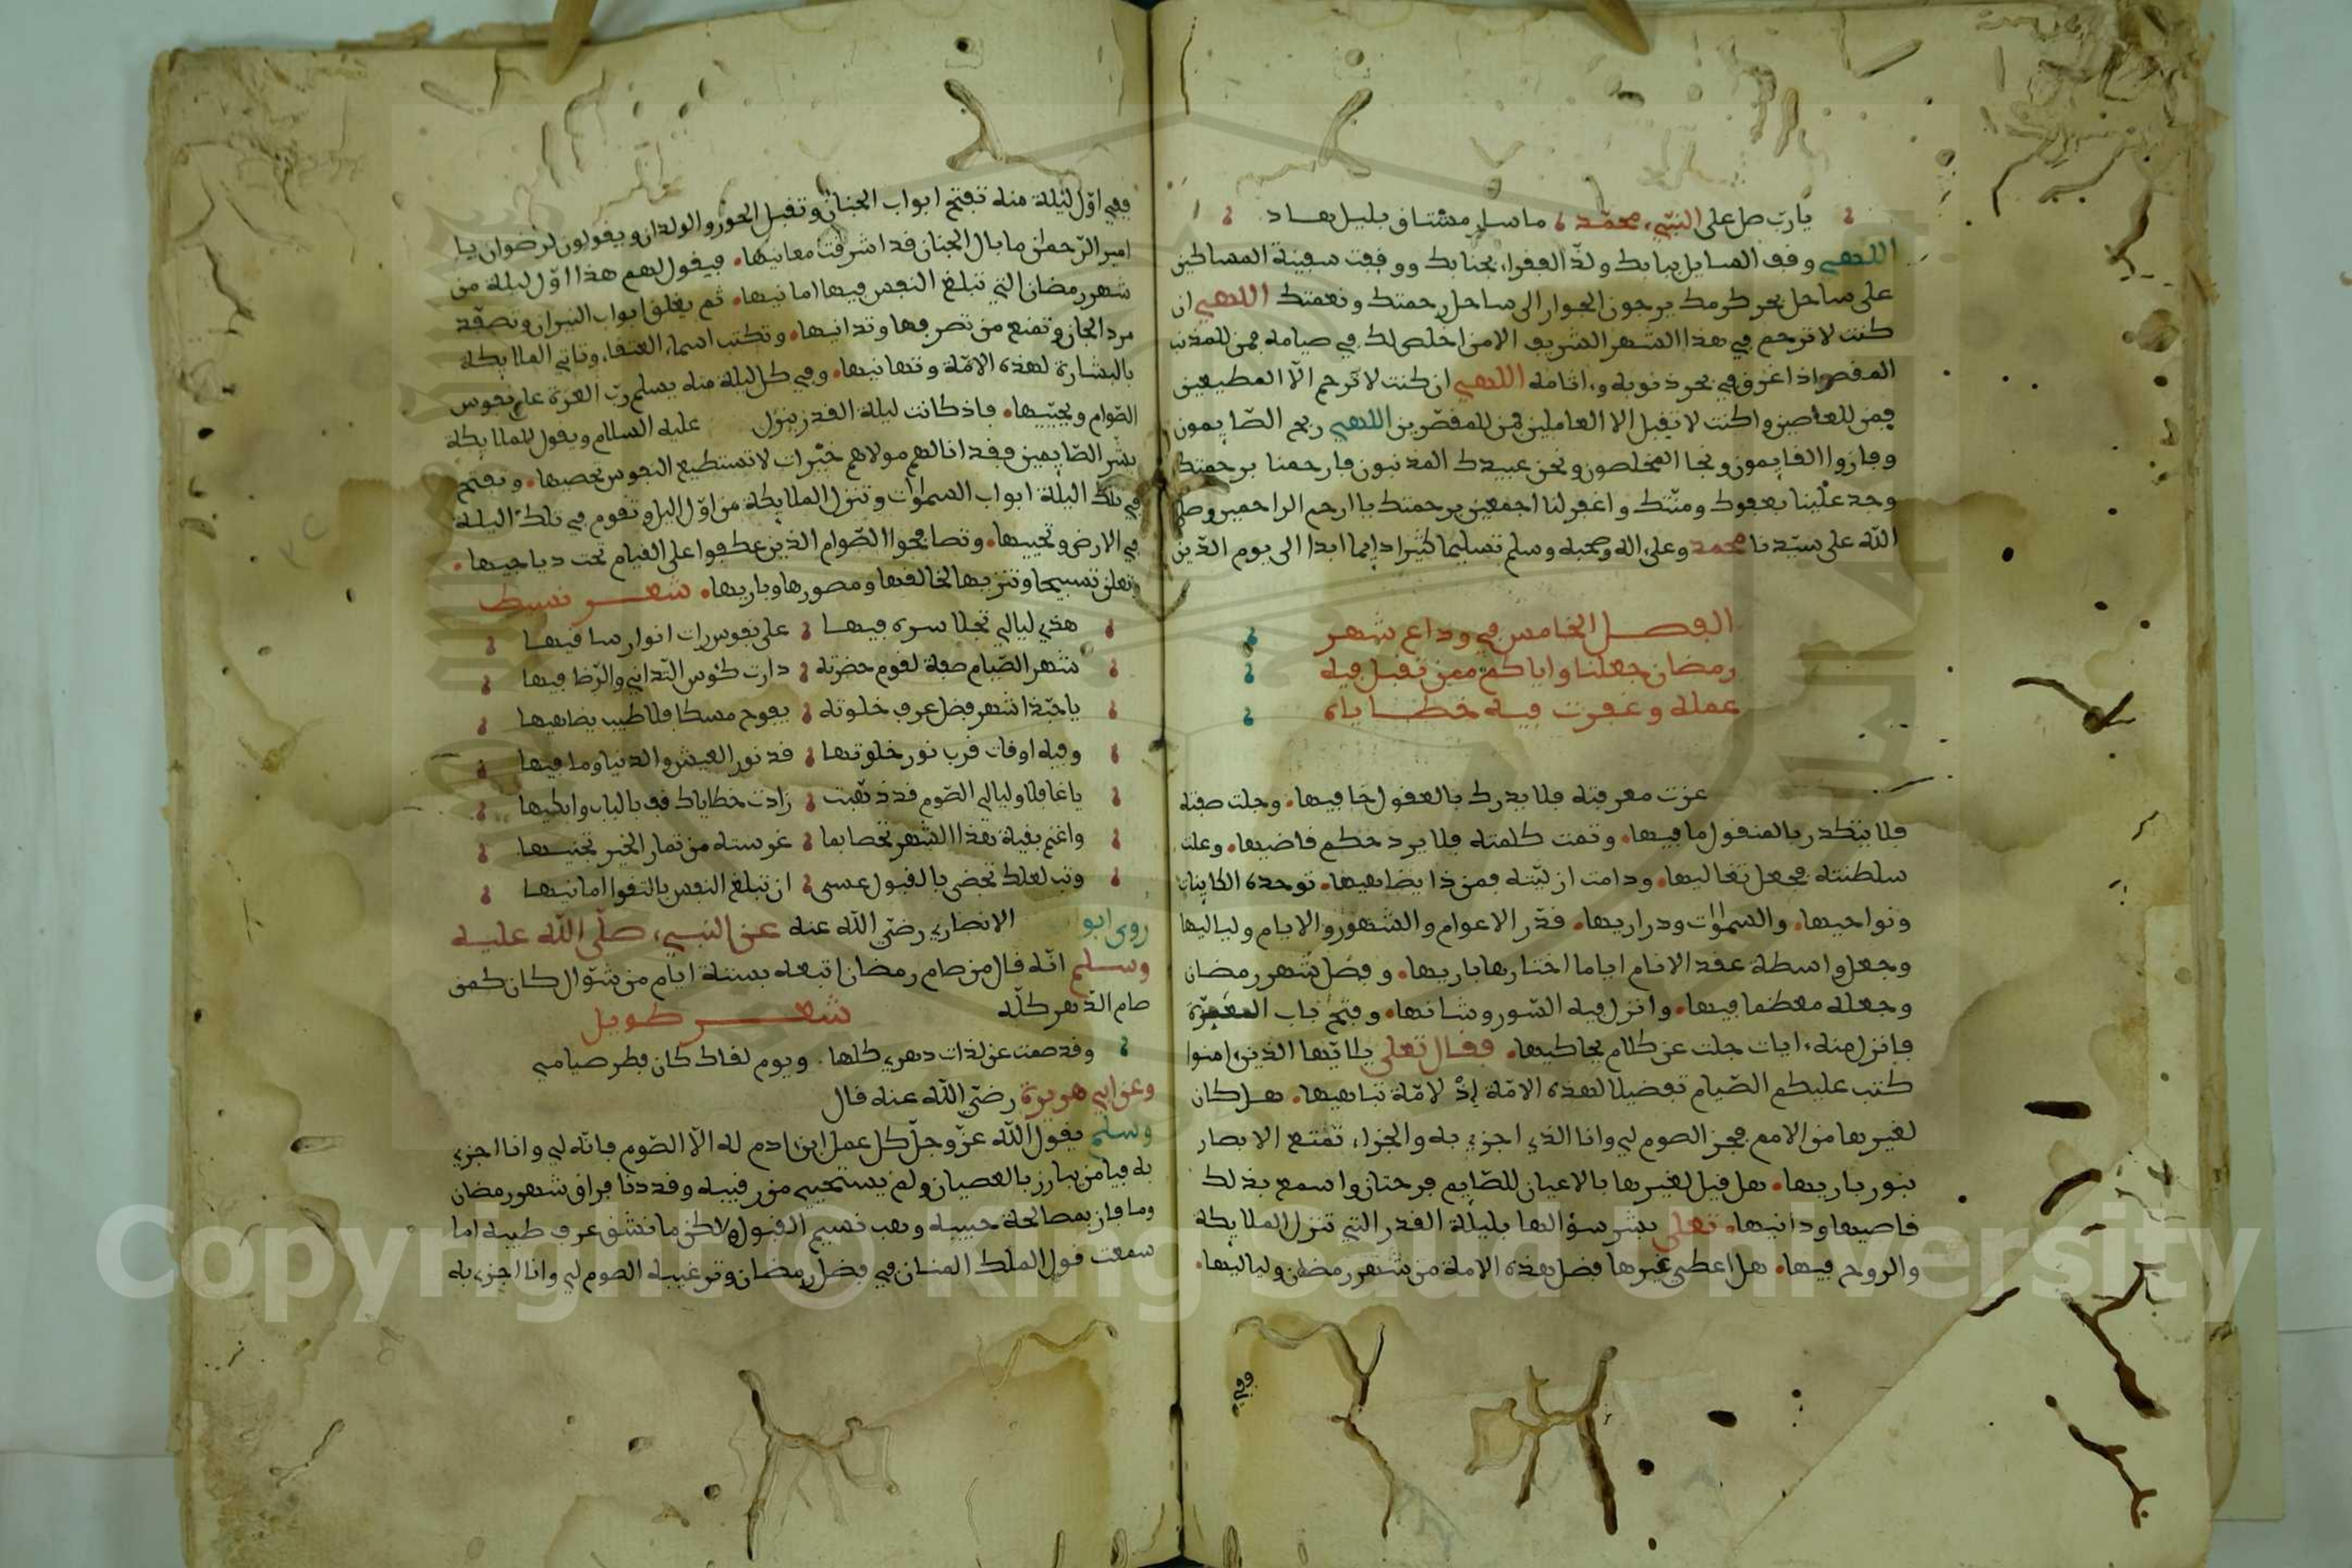 يارب صل على النبيء محمد ما سار مشتاق بليل هاد
اللهم وقف السايل ببابك ولذ الفقراء بجنابك ووقفت سفينة المساكين
على ساحل بحر كرمك يرجون الجوار الى ساحل رحمتك ونعمتك اللهم ان
كنت لا ترحم في هذا الشهر الشريف الا من اخلص لك في صيامه فمن للمذنب
المقصر اذا غرق في بحر ذنوبه وءاثامه اللهم ان كنت لا ترحم الا المطيعين
فمن للعاصين وان كنت لا تقبل الا العاملين فمن للمقصرين اللهم ربح الصايمون
وفازوا القايمون ونجا المخلصون ونحن عبيدك المذنبون فارحمنا برحمتك
وجد علينا بعفوك ومنتك واغفر لنا اجمعين برحمتك يا ارحم الراحمين وصل
الله على سيدنا محمد وعلى اله وصحبه وسلم تسليما كثيرا دايما ابدا الى يوم الدين
الفصل الخامس في وداع شهر
رمضان جعلنا واياكم ممن تقبل فيه
عمله وغفرت فيه خطاياه
عزت معرفته فلا يدرك بالعقول خافيها وجلت صفته
فلا يتكدر بالمنقول ما فيها وتمت كلمته فلا يرد حكم قاضيها وعلت
سلطنته فجعل تعاليها ودامت ازليته فمن ذا يضاهيها توحده الكاينات
ونواحيها والسموات ودراريها قدر الاعوام والشهور والايام ولياليها
وجعل واسطة عقد الانام اياما اختارها باريها وفضل شهر رمضان
وجعله معظما فيها وانزل فيه السور وشانها وفتح باب المغفرة
فانزل منه ءايات جلت عن كلام يحاكيها فقال تعلى يا ايها الذين ءامنوا
كتب عليكم الصيام تفضيلا لهذه الامة إذ لا امة تباهيها هل كان
لغيرها من الامم فجز الصوم لي وانا الذي اجزي به والجزاء تمتع الابصار
بنور باريها هل قيل لغيرها بالاعيان للصايم فرحتان واسمع بذلك
قاصيها ودانيها تعلى بشر سؤالها بليلة القدر التي تنزل الملايكة
والروح فيها هل اعطى غيرها فضل هذه الامة من شهر رمضان ولياليها
ففي
ففي اول ليلة منه تفتح ابواب الجنان وتقبل الحور والولدان ويقولون لرضوان يا
امير الرحمن ما بال الجنان قد اشرقت معانيها فيقول لهم هذا اول ليلة من
شهر رمضان التي تبلغ النفس فيها امانيها ثم يغلق ابواب النيران وتصفد
مرد الجان وتمنع من تصرفها وتدانيها وتكتب اسماء العتقاء وتاتي الملايكة
بالبشارة لهذه الامة وتهانيها وفي كل ليلة منه يسلم رب العزة على نفوس
الصوام ويحييها فاذ كانت ليلة القدر ينزل عليه السلام ويقول للملايكة
بشر الصايمين فقد انالهم مولاهم خيرات لا تستطيع النفوس تحصيها وتفتح
في تلك اليلة ابواب السموات وتنزل الملايكة من اول اليل وتقوم في تلك اليلة
في الارض وتحييها وتصافحوا الصوام الذين عكفوا على القيام تحت دياجيها
وتعلن تسبيحا وتنزيها لخالقها ومصورها وباريها شعر بسيط
هذي ليالي تجلا سره فيها على نفوس رات انوار ساقيها
شهر الصيام صفة لقوم حضرته دارت كؤس التداني والرضا فيها
يا حبذا شهر فضل عرف خلوته يفوح مسكا فلا طيب يضاهيها
وفيه اوقات قرب نور خلوتها قد نور العيش والدنيا وما فيها
يا غافلا وليالي الصوم قد ذهبت زادت خطاياك قف بالباب وابكيها
واغنم بقية هذا الشهر تحظا بما غرسته من ثمار الخير تجنيها
وتب لعلك تحضى بالقبول عسى ان تبلغ النفس بالتقوا امانيها
روى ابو الانصاري رضي الله عنه عن النبيء صلى الله عليه
وسلم انه قال من صام رمضان اتبعه بستة ايام من شوال كان كمن
صام الدهر كله شعر طويل
وقد صمت عن لذات دهري كلها ويوم لقاك كان فطر صيامي
وعن ابي هريرة رضي الله عنه قال
وسلم يقول الله عز وجل كل عمل ابن ءادم له الا الصوم فانه لي وانا اجزي
به فيا من بارز بالعصيان ولم يستحيي من رقيبه وقد دنا فراق شهر رمضان
وما فاز بمصالحة حبيبه وهب نسيم القبول ولكن ما نشق عرف طيبه اما
سمعت قول الملك المنان في فضل رمضان وترغيبه الصوم لي وانا اجزي به
Copyright © King Saud University